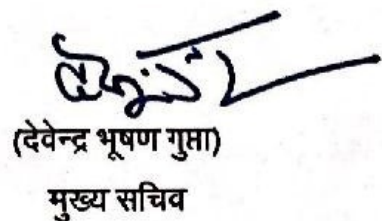 (देवेन्द्र भूषण गुप्ता)
मुख्य सचिव